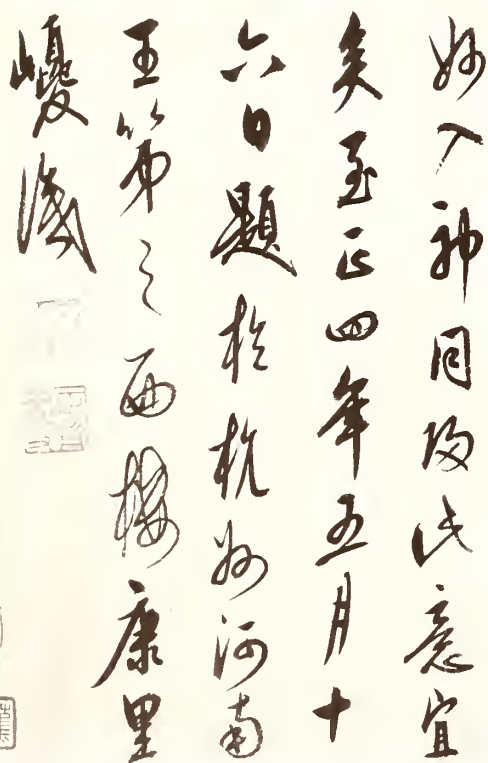 妙入神此意宜
矣至正四年五月十
六日題於杭州河南
王第之西樓康里
巎識